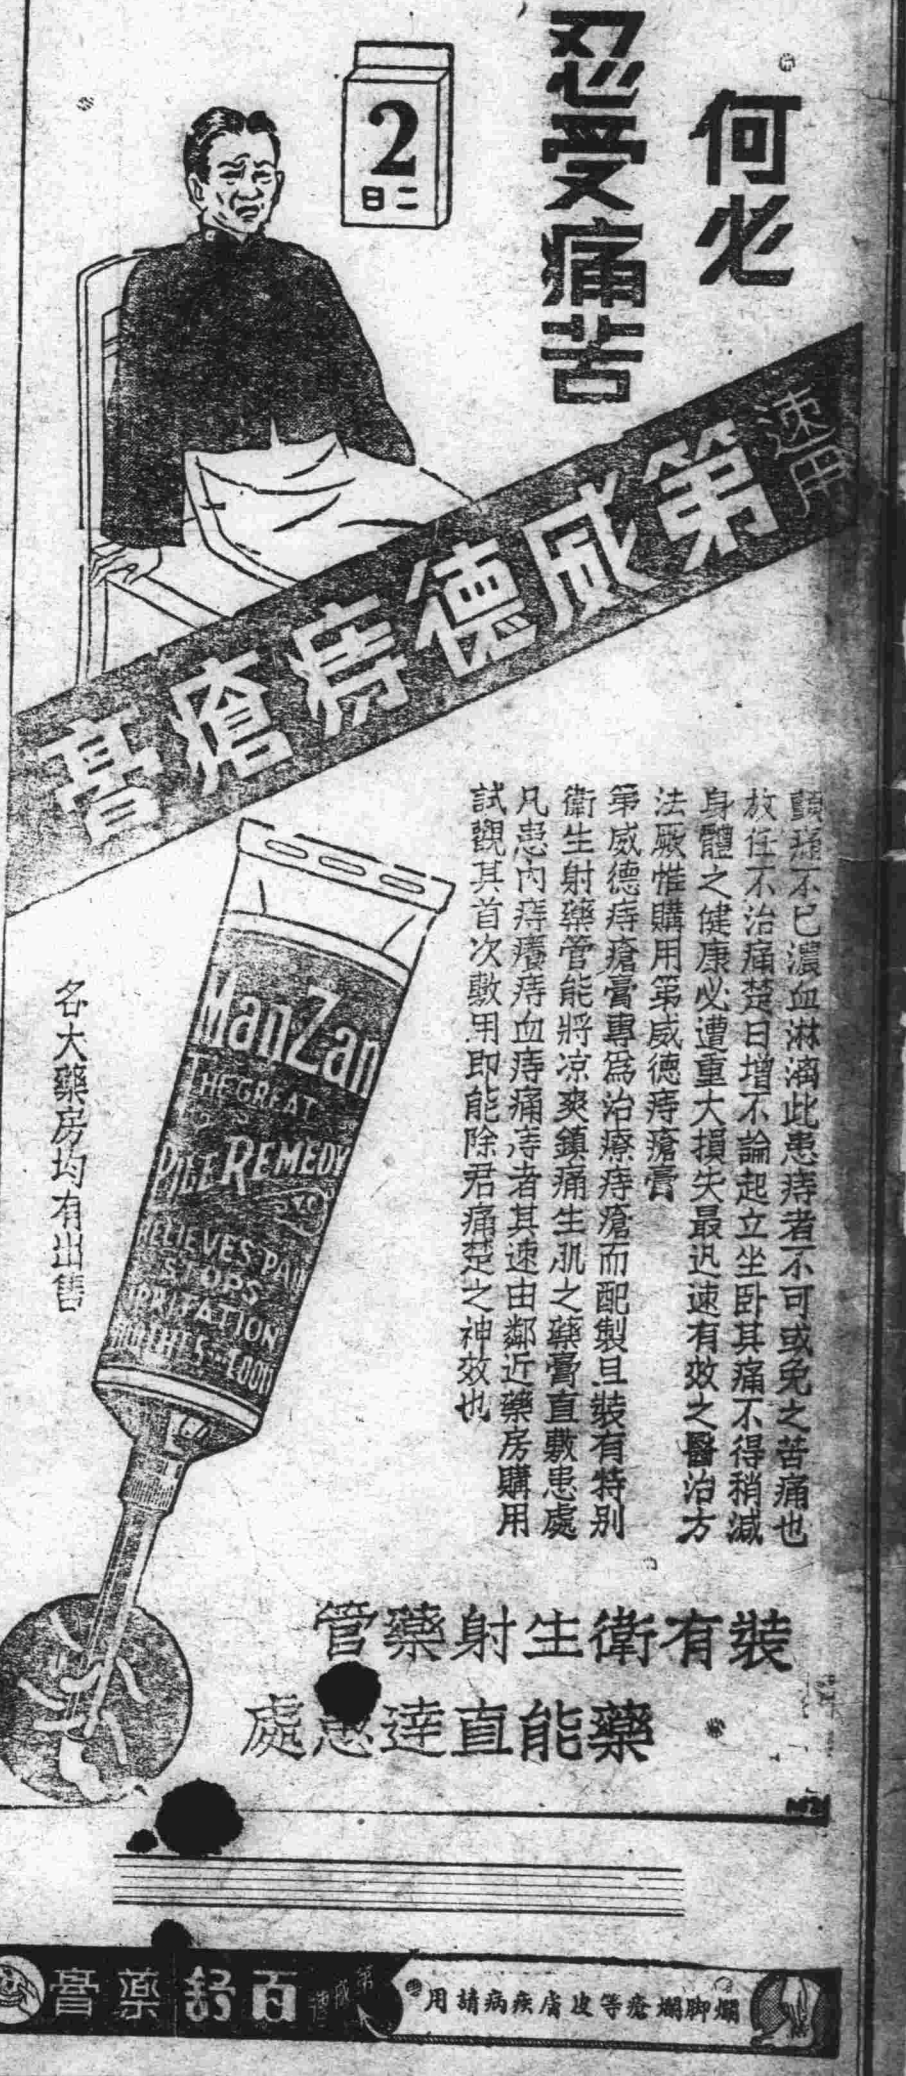 何必
忍受痛苦
2
二日
速用
第威德痔瘡膏
顫痛不已濃血淋漓此患痔者不可或免之苦痛也
放任不治痛楚日增不論起立坐卧其痛不得稍減
身體之健康必遭重大損失最迅速有效之醫治方
法厥惟購用第威德痔瘡膏
第威德痔瘡膏專爲治療痔瘡而配製且裝有特别
衛生射藥管能將凉爽鎮痛生肌之藥膏直敷患處
凡患內痔癢痔血痔痛痔者其速由鄰近藥房購用
試觀其首次敷用即能除君痛楚之神效也
ManZan
THE GREAT
PILE REMEDY
RELIEVES PAIN
STOPS
IRRITATION
SOOTHES
各大藥房均有出售
裝有衛生射藥管
藥能直達患處
爛脚爛瘡等皮膚疾病請用
第威德
百舒藥膏